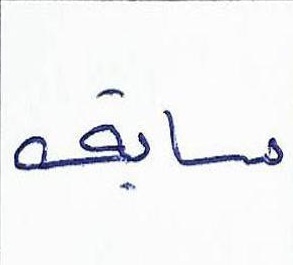 مسابقه